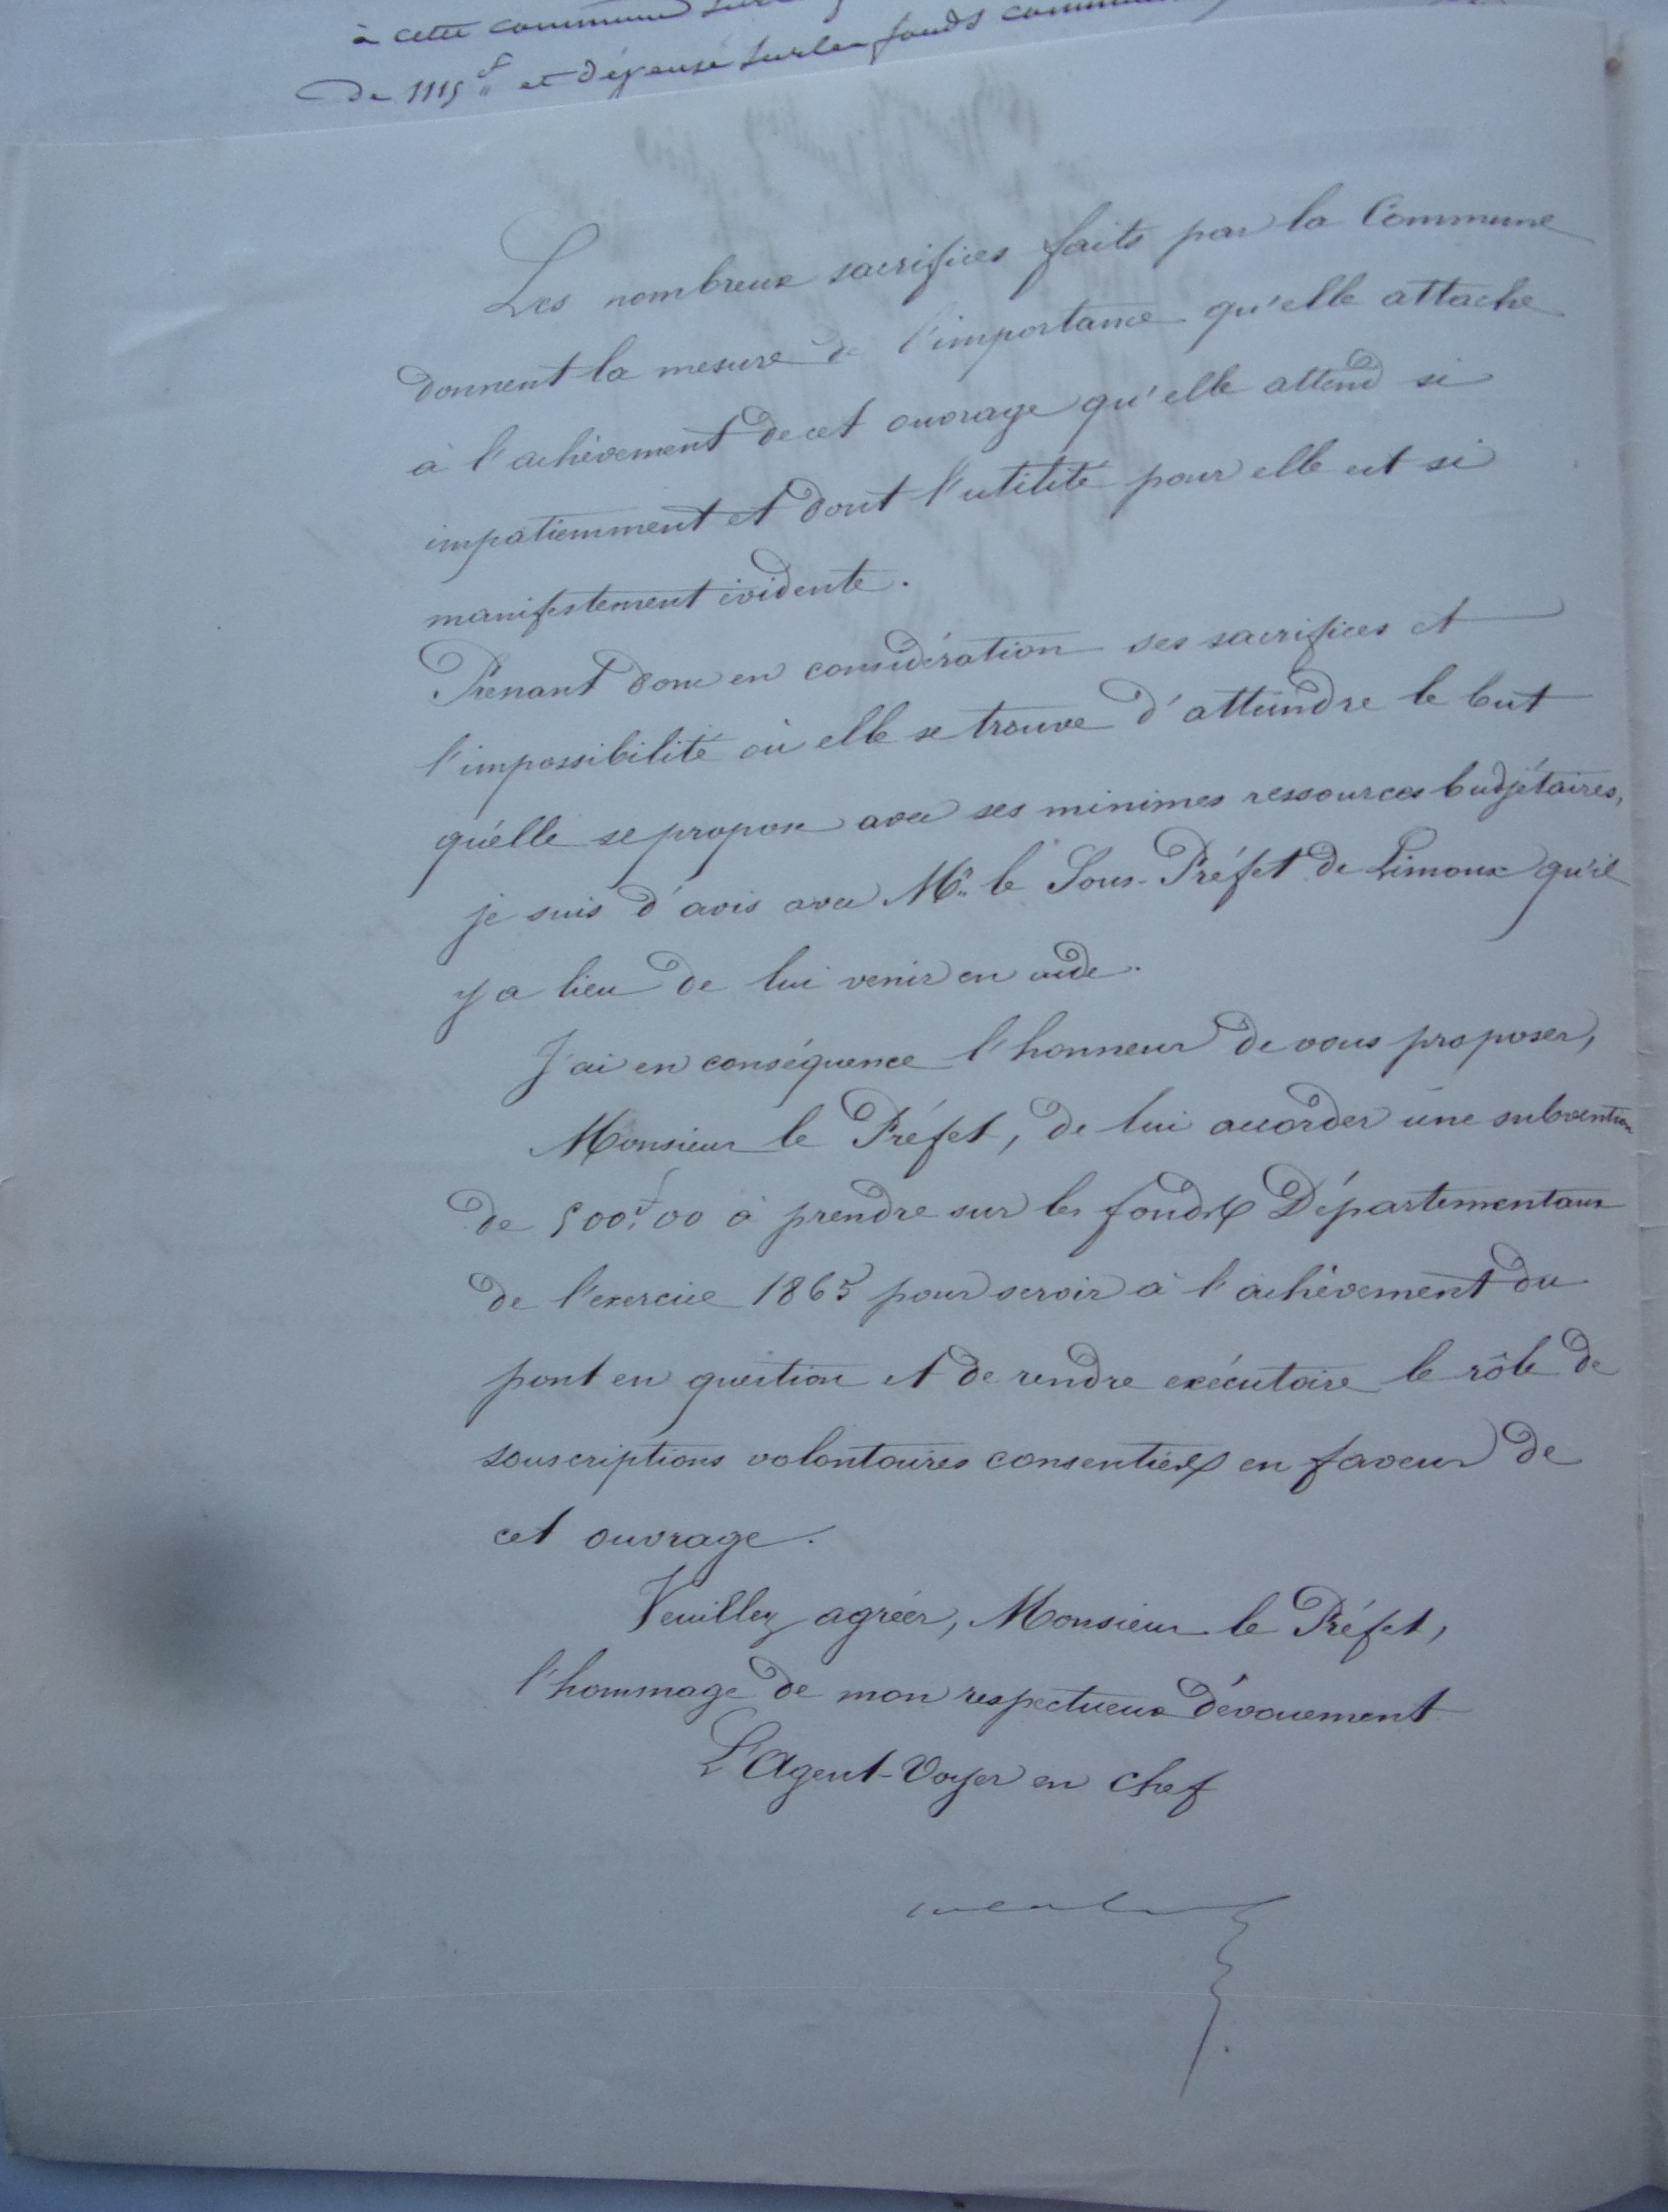 à cette commune sur
De 1115f et dépensé sur les fonds
Les nombreux sacrifices faits par la Commune
donnent la mesure de l'importance qu'elle attache
à l'achèvement de cet ouvrage qu'elle attend si
impatiemment et dont l'utilité pour elle est si
manifestement évidente.
Prenant donc en considération ses sacrifices et
l'impossibilité où elle se trouve d'atteindre le but
qu'elle se propose avec ses minimes ressources budjétaires,
je suis d'avis avec Mr. le Sous-Préfet de Limoux qu'il
y a lieu de lui venir en aide.
J'ai en conséquence l'honneur de vous proposer,
Monsieur le Préfet, de lui accorder une subvention
de 500f,00 à prendre sur les fonds Départementaux
de l'exercice 1865 pour servir à l'achèvement du
pont en question et de rendre exécutoire le rôle de
souscriptions volontaires consenties en faveur de
cet ouvrage.
Veuillez agréer, Monsieur le Préfet,
l'hommage de mon respectueux dévouement
L'Agent-Voyer en chef